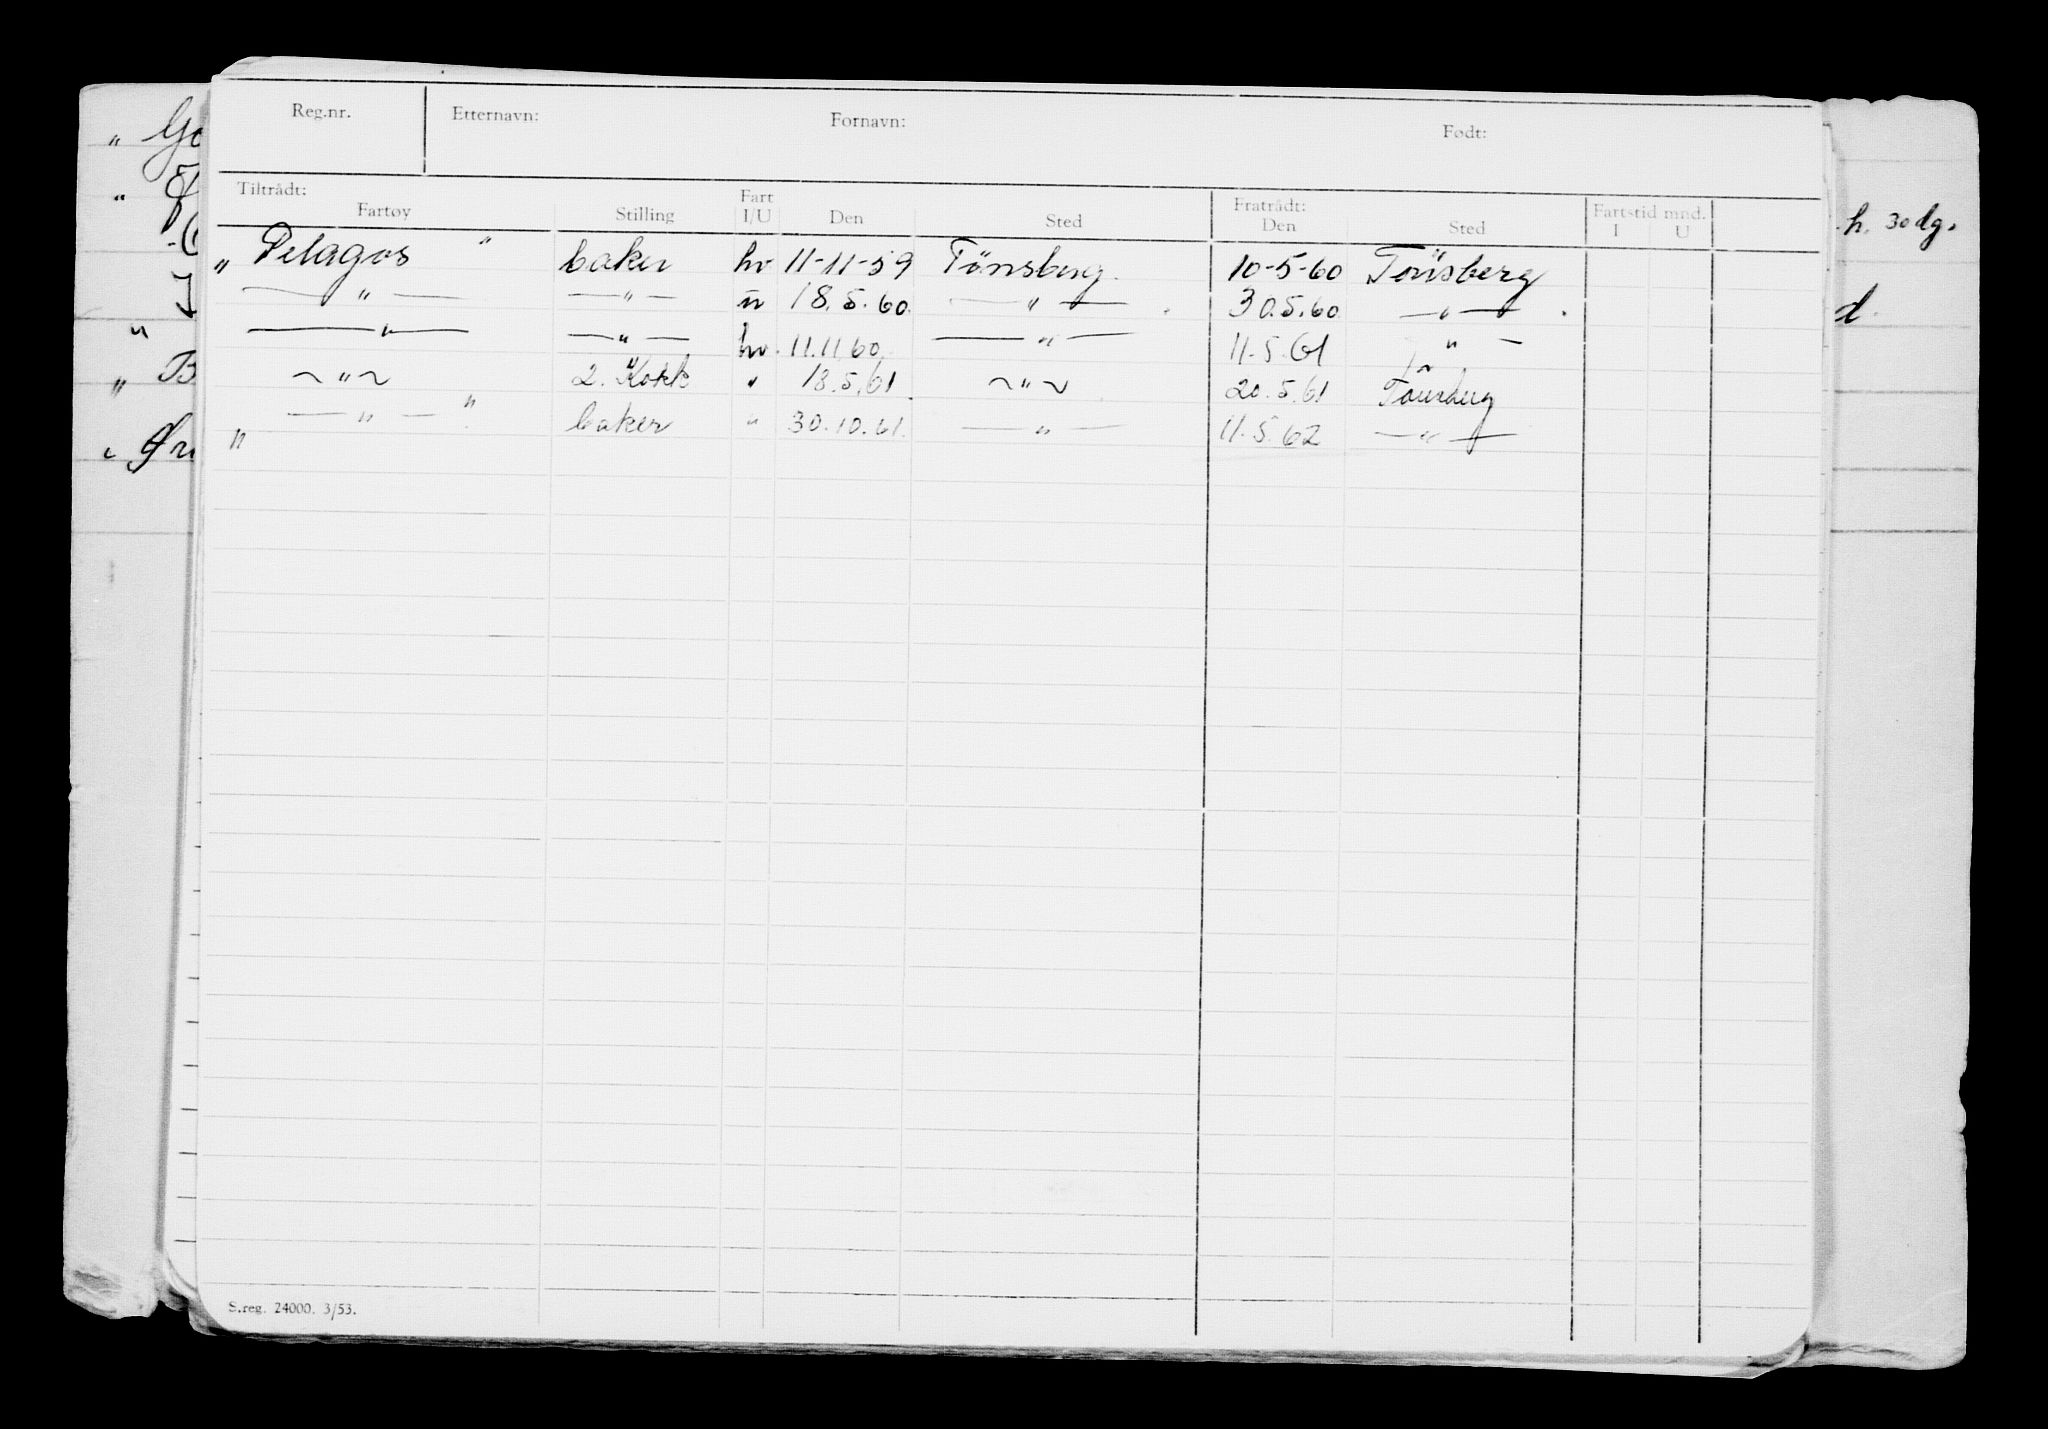 Reg.nr. Etternavn: Fornavn: Født:
Tiltrådt: Fratrådt:
Fartøy Stilling Fart I/U Den Sted Den Sted Fartstid mnd. I U
„ Pelagos " baker hv 11-11-59 Tönsberg. 10-5-60 Tönsberg
— " — — " — u 18.5.60 — " — 30.5.60 — " —
— " — — " — hv. 11.11.60 — " — 11.5.61 " —
~ " ~ 2. Kokk " 18.5.61 ~ " ~ 20.5.61 Tönsberg
„ — " — " baker " 30.10.61 — " — 11.5.62 — " —
S.reg. 24000. 3/53.
h. 30 dg.
d